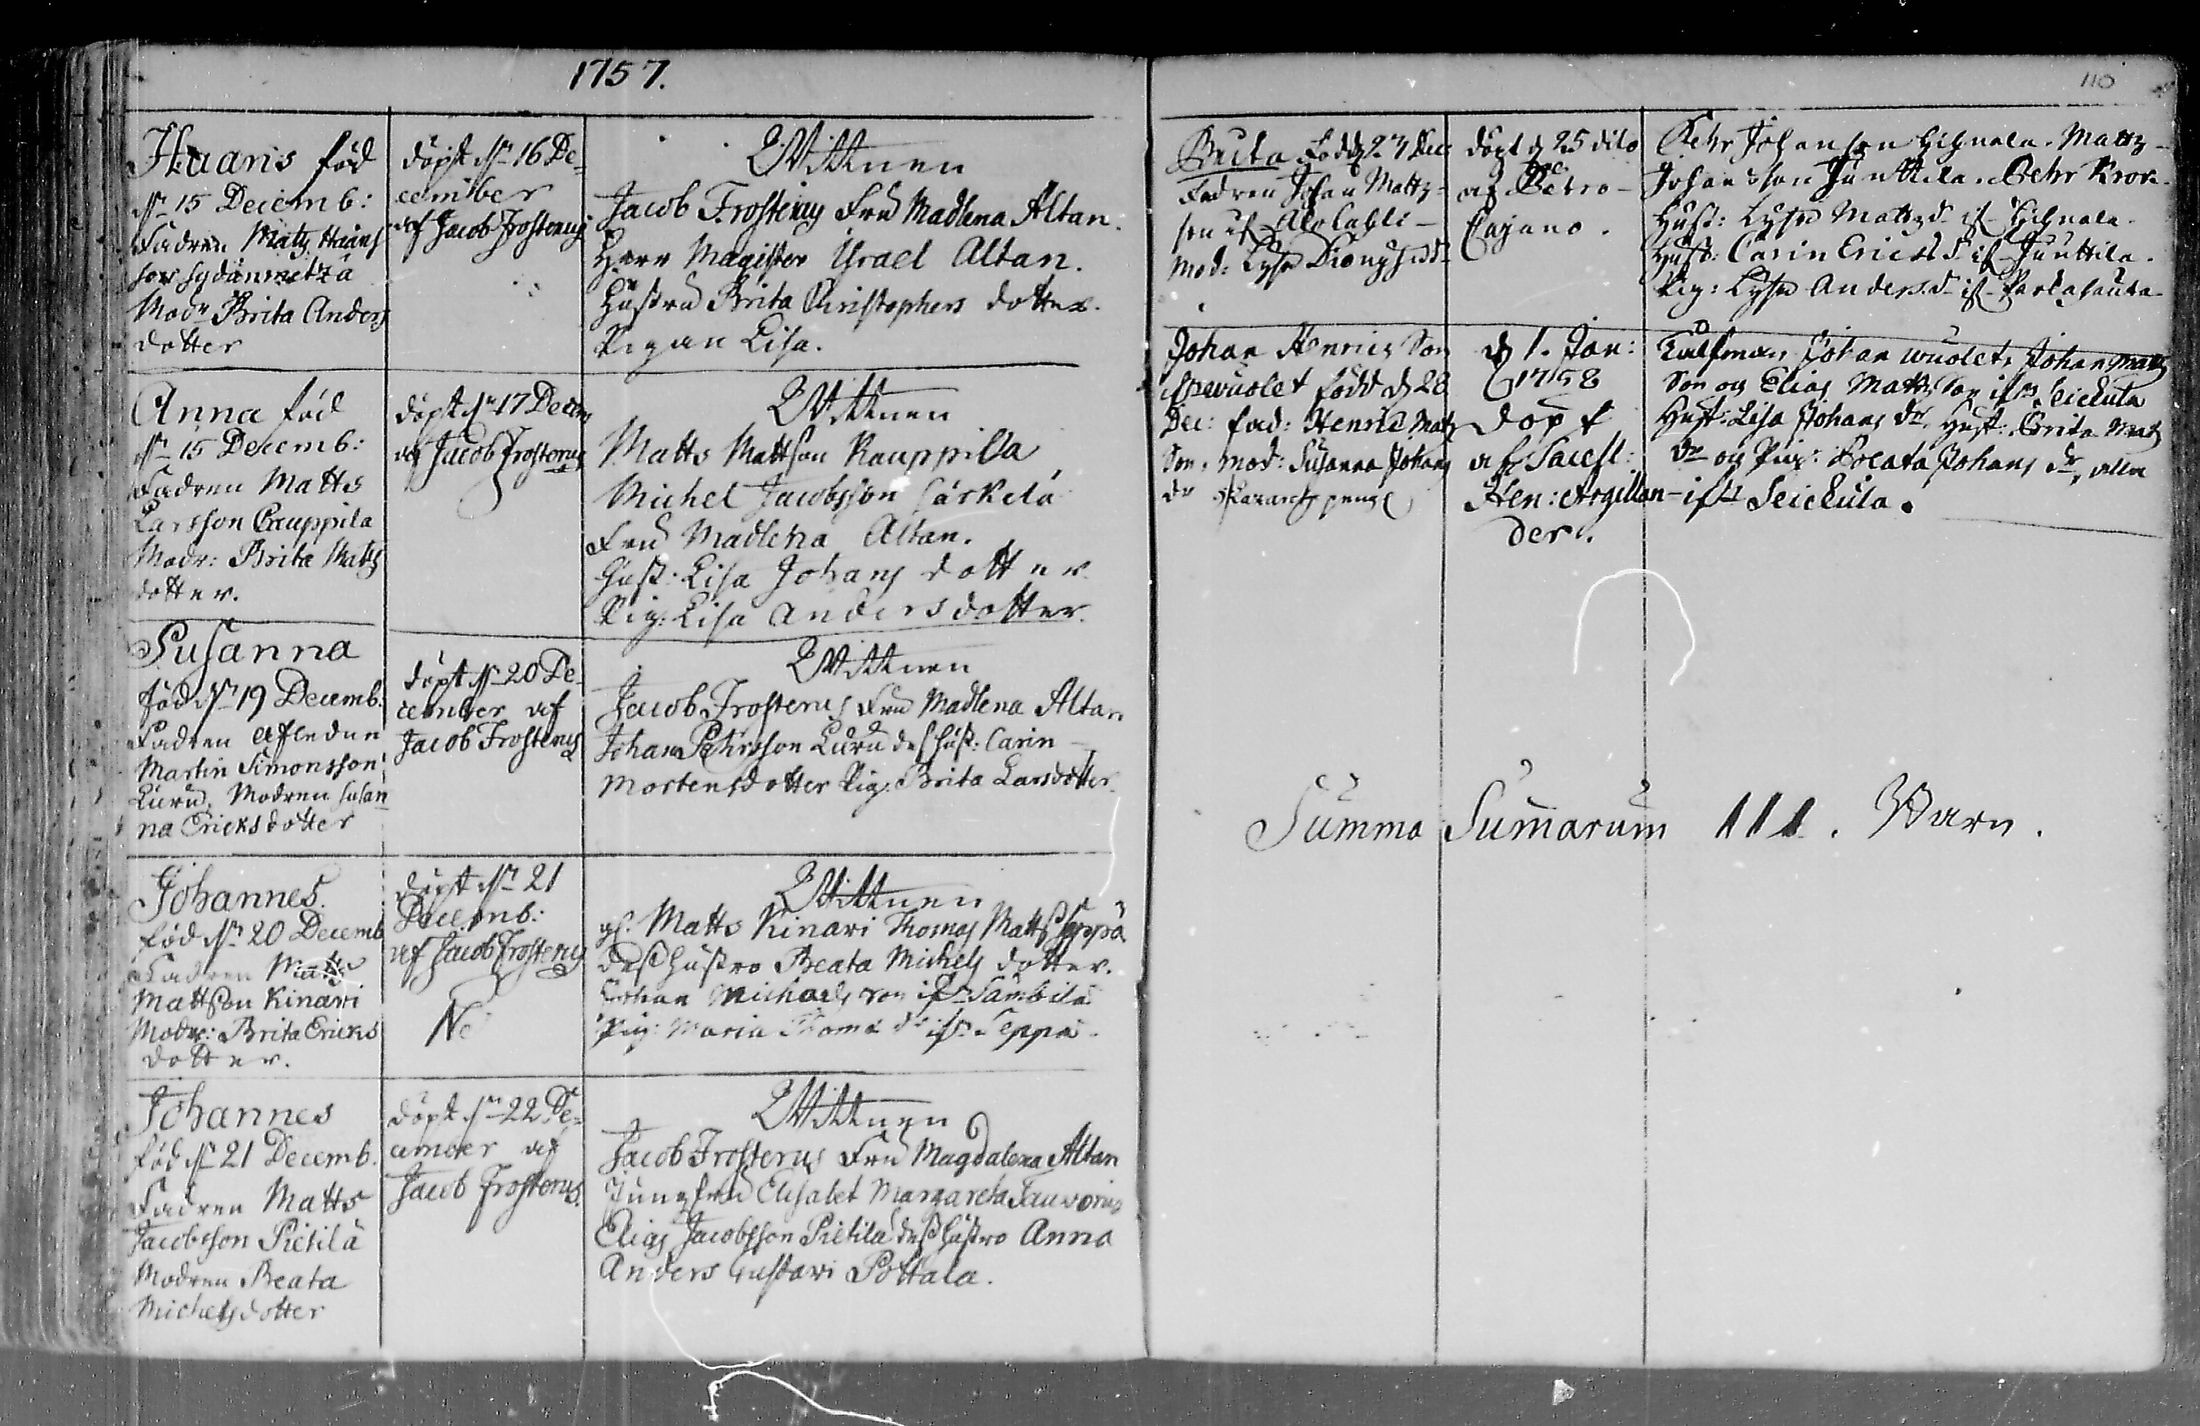 1757.
110
Haans fød
dn 15 Decemb:
Fadren Matz Haans
son Sydänmetzä
Modr Brita Anders
dotter
döpt dn 16 De-
cember
af Jacob Frosterus
Wittnen
Jacob Frosterus Fru Madlena Altan.
Herr Magister Israel Altan.
Hustru Brita Christophers dotter.
Pigan Lisa.
Anna fød
dn 15 Decemb:
Fadren Matts
Larsson Rauppila
Modr: Brita Matz
dotter.
döpt dn 17 Decem
af Jacob Frosterus
Wittnen
Matts Mattson Rauppila
Michel Jacobsson Särkelä
Fru Madlena Altan.
Hust: Lisa Johans dotter.
Pig: Lisa Andersdotter.
Susanna
fød dn 19 Decemb.
Fadren afledne
Martin Simonsson
Luru, Modren Susan
na Ericksdotter
döpt dn 20 De-
cember af
Jacob Frosterus
Wittnen
Jacob Frosterus Fru Madlena Altan
Johan Pehrsson Luru des hust: Carin
Mortensdotter Pig: Brita Larsdotter.
Johannes.
fød dn 20 Decemb
Fadren Matts
Mattson Kinari
Modr: Brita Ericks
dotter.
döpt dn 21
Decemb:
af Jacob Frosterus
Wittnen
Matts Kinari Thomas Matts Seppä
des hustro Beata Michels dotter.
Johan Michaels son ifr Sambila
Pig: Maria Thomæ dr ifr Seppä.
Johannes
fød dn 21 Decemb.
Fadren Matts
Jacobsson Pietilä
Modren Beata
Michelsdotter
döpt dn 22 De-
cember af
Jacob Frosterus.
Wittnen
Jacob Frosterus Fru Magdalena Altan
Jungfru Elisabet Margareta
Elias Jacobsson Pietilä des hustro Anna
Anders Gustavi Pottala.
Brita Född 27 Dec
Fadren Johan Mattz-
son if
Mod: Lysa
döpt d 25 dito
af Petro
Cajano.
Pehr Johansson Hihnala. Mattz
Johansson Junttila. Pehr Krok.
Hust: Lysa Matzdr if Hihnala
Hust: Carin Ericsdr if Junttila.
Pig: Lysa Andersdr if
Johan Henrics Son
if Wuolet född d 28
Dec: fad: Henric Matz
Son, mod: Susanna Johans
dr
d 1. Jan:
1758
döpt
af Sacell:
Hen: Argillan-
der.
Johan Wuolet, Johan Matz
Son og Elias Matts Son ifrn Seickula
Hust: Lisa Johans dr, Hust: Brita Matz
dr og Pig: Beata Johans dr, alla
ifrn Seickula.
Summa Sumarum 111. Barn.